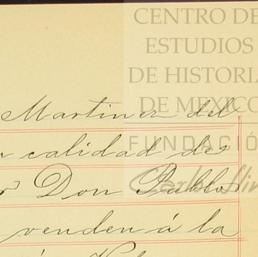 CENTRO DE
ESTUDIOS
DE HISTORIA
DE MEXICO
FUNDACIÓ
Carlos Slim
Martinez del
calidad de
Don Pablo
venden á la